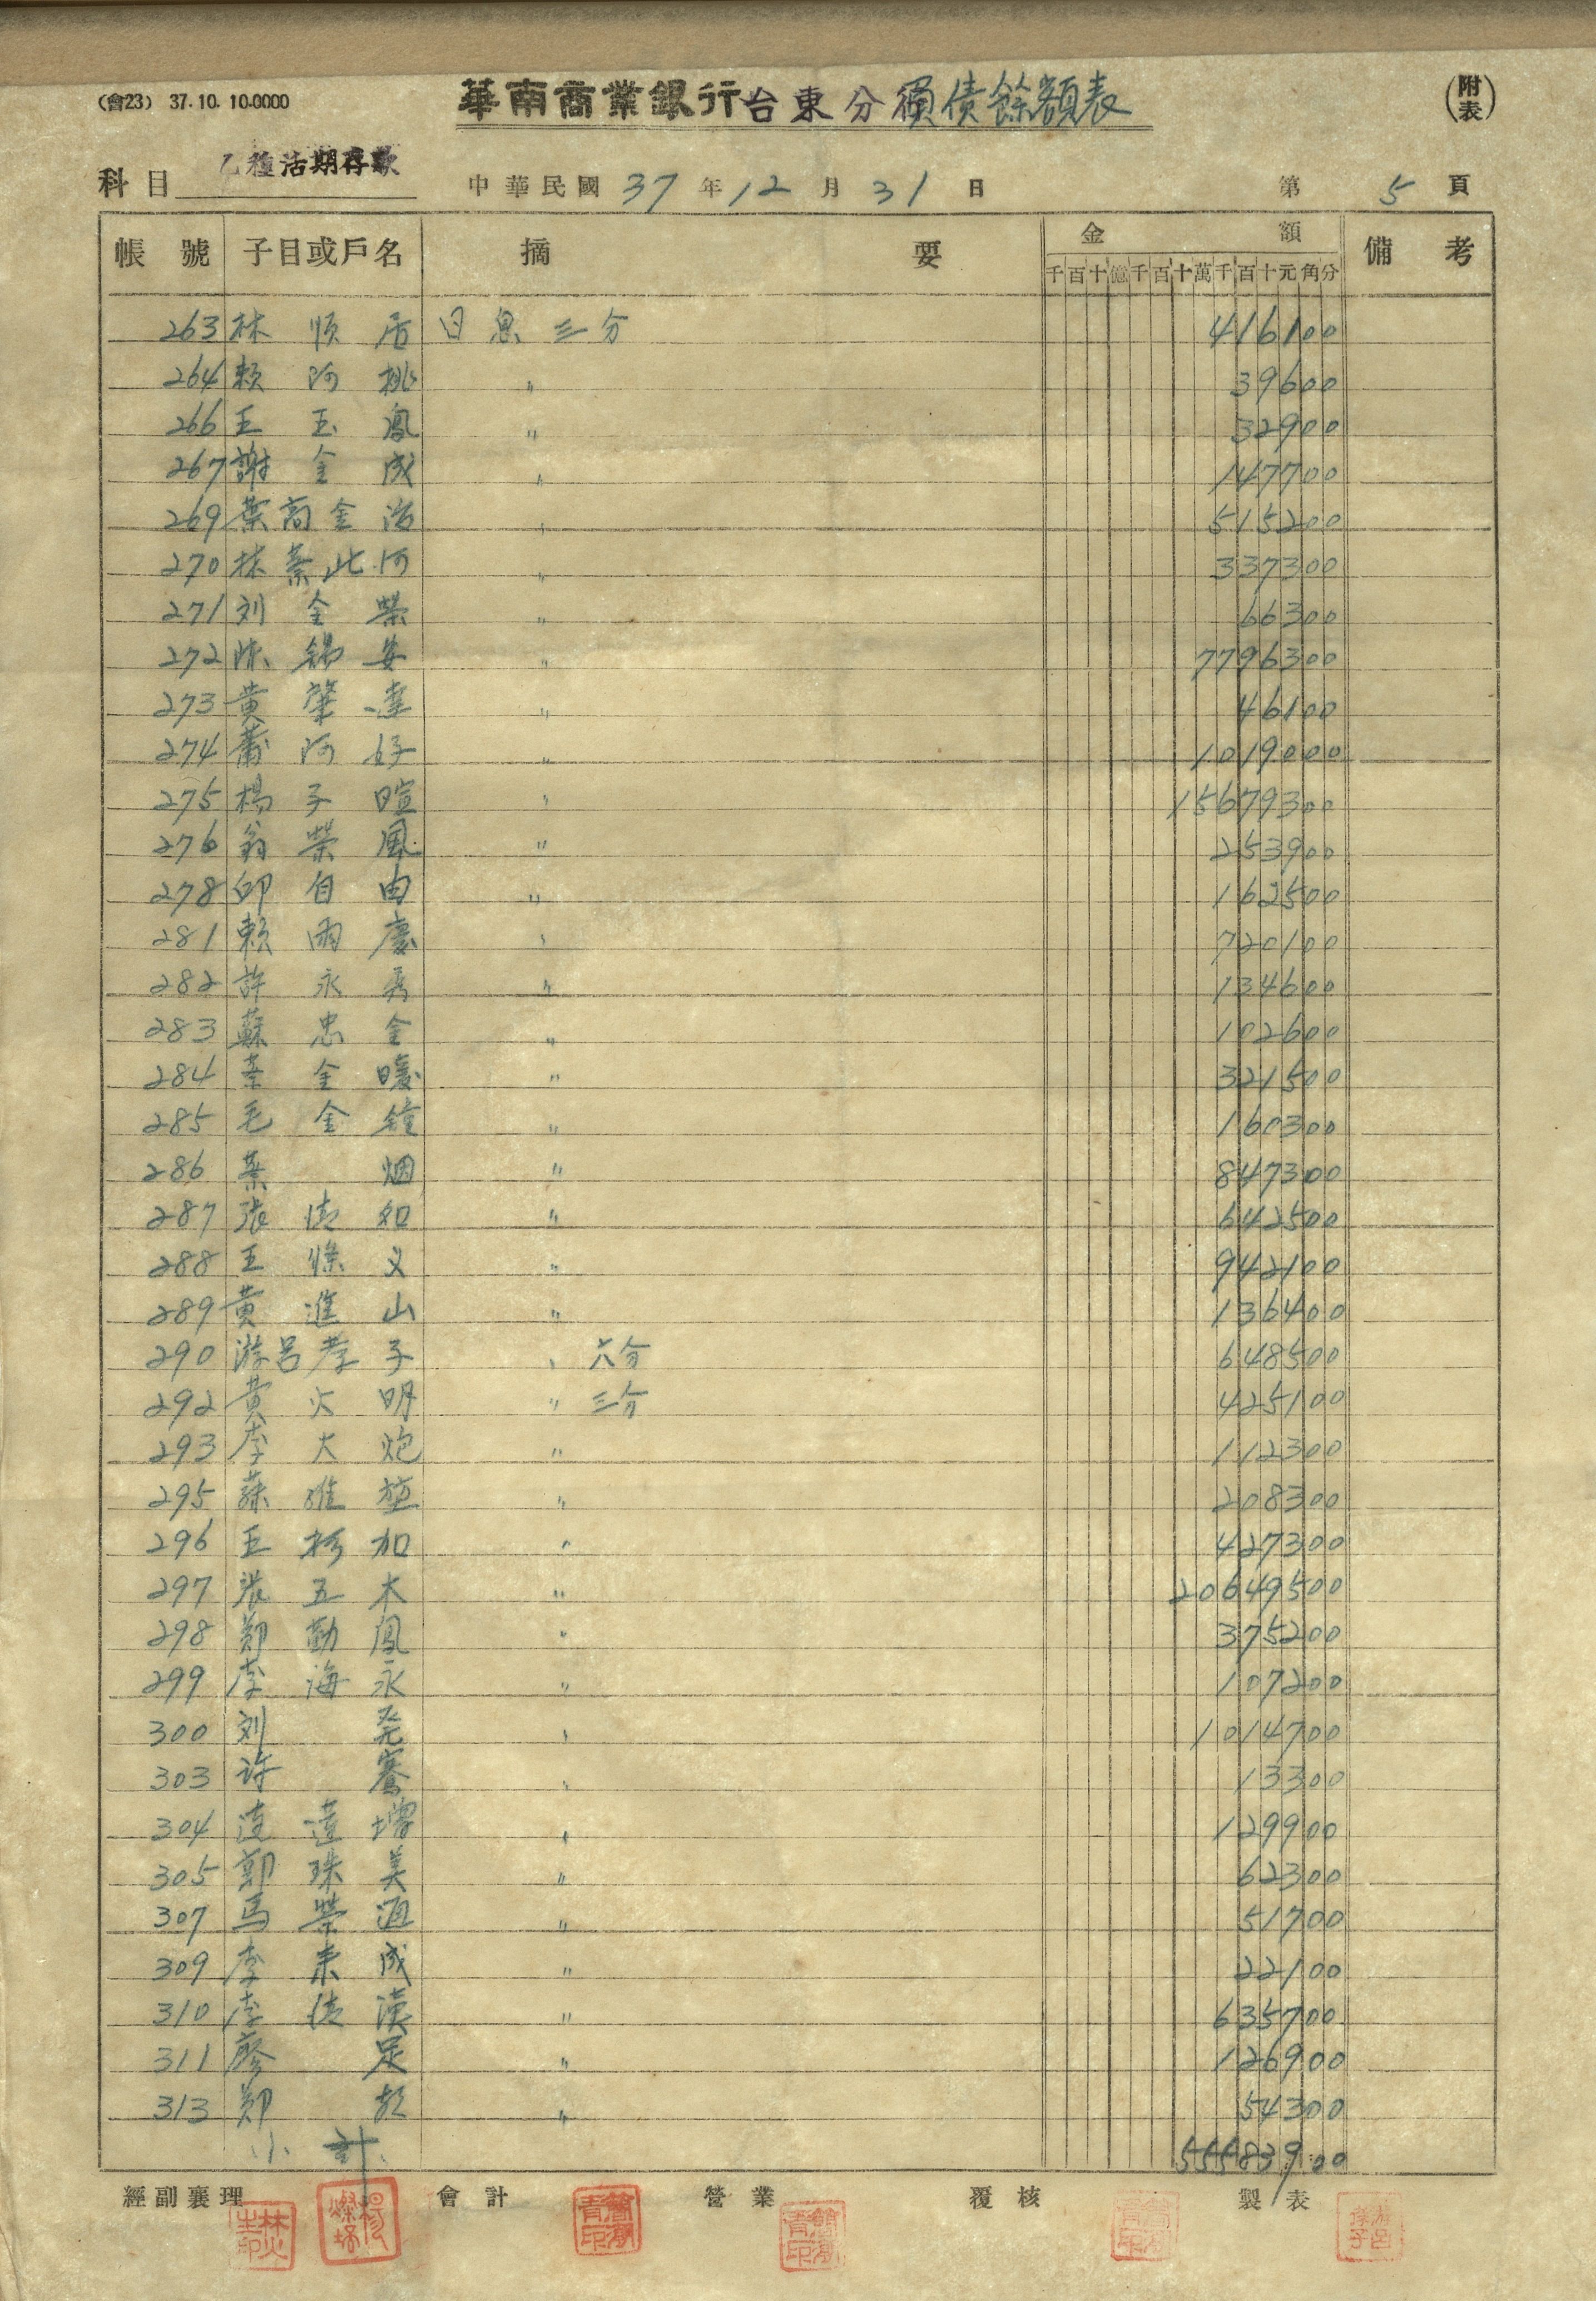 (會23) 37.10.10.0000
華南商業銀行台東分損債餘額表
(附表)
科目 乙種活期存款 中華民國37年12月31日 第5頁
帳號 子目或戶名 摘要 金額 備考
千百十億千百十萬千百十元角分
263 林順居 日息三分 416100
264 賴阿桃 〃 39600
266 王玉鳳 〃 32900
267 謝金成 〃 147700
269 葉高金治 〃 515200
270 林葉此河 〃 337300
271 刘金榮 〃 66300
272 陈錫安 〃 7796300
273 黄肇達 〃 46100
274 蕭阿好 〃 1019000
275 楊子暄 〃 15679300
276 翁榮風 〃 253900
278 邱自由 〃 162500
281 賴雨慶 〃 720100
282 許永秀 〃 134600
283 蘇忠金 〃 102600
284 葉金暖 〃 321500
285 毛金鐘 〃 160300
286 葉烟 〃 847300
287 張德如 〃 642500
288 王條义 〃 942100
289 黄進山 〃 136400
290 游呂孝子 〃 六分 648500
292 黄火明 〃 三分 425100
293 李大炮 〃 112300
295 蘇维 〃 208300
296 王加 〃 427300
297 張五木 〃 20649500
298 鄭勤鳳 〃 375200
299 李海永 〃 107200
300 刘発 〃 1014700
303 许騫 〃 13300
304 連達增 〃 129900
305 鄭珠美 〃 62300
307 馬榮通 〃 51700
309 李来成 〃 22100
310 李德漢 〃 635700
311 廖足 〃 126900
313 鄭 〃 54300
小計 55583900
經副襄理 會計 營業 覆核 製表